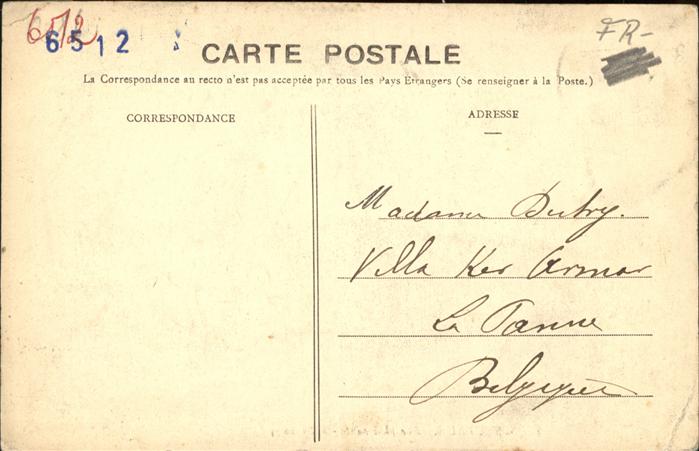 6512
6 5 1 2
FR-
CARTE POSTALE
La Correspondance au recto n'est pas acceptée par tous les Pays Etrangers (Se renseigner à la Poste.)
CORRESPONDANCE
ADRESSE
Madame Dutry.
Villa Ker Armor
La Panne
Belgique